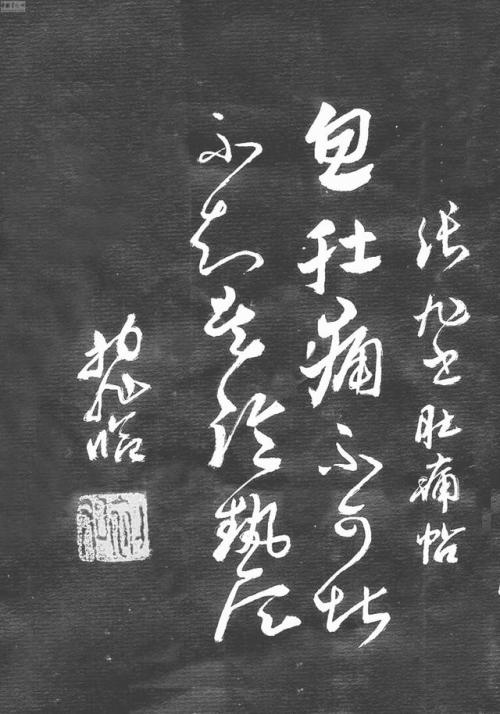 张旭书肚痛帖
忽肚痛不可堪
不知是冷熱所
临